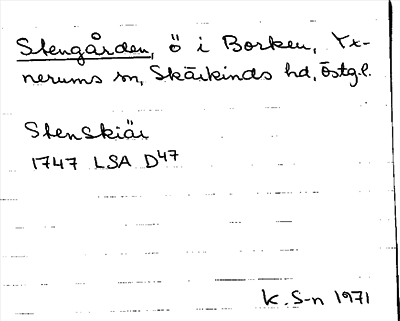 Stengården, ö i Borken, Yx-
nerums sn, Skärkinds hd, Östg.l.
Stenskiär
1747 LSA D47
K. S-n 1971